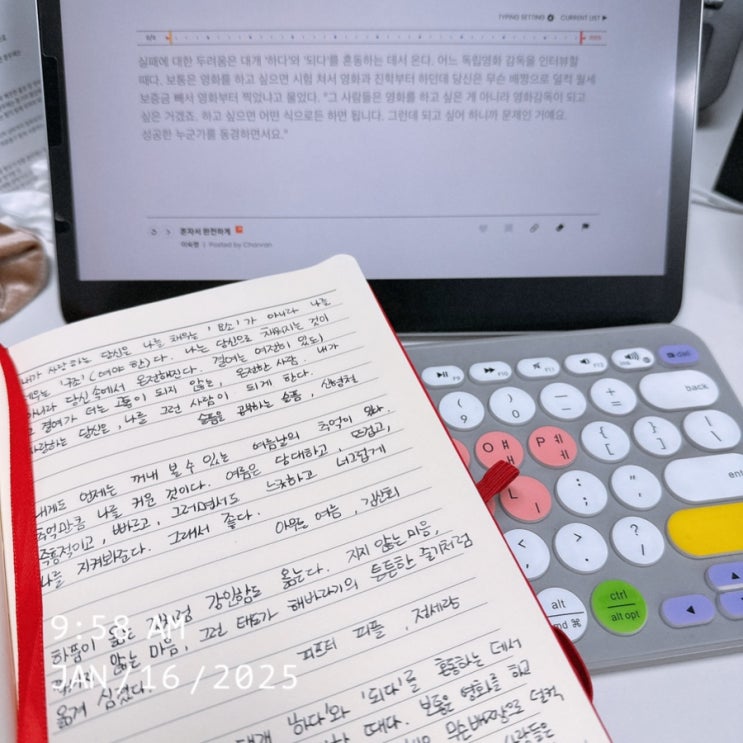 TYPING SETTING CURRENT LIST ▶
실패에 대한 두려움은 대개 '하다'와 '되다'를 혼동하는 데서 온다. 어느 독립영화 감독을 인터뷰할
때다. 보통은 영화를 하고 싶으면 시험 쳐서 영화과 진학부터 하던데 당신은 무슨 배짱으로 덜컥 월세
보증금 빼서 영화부터 찍었냐고 물었다. "그 사람들은 영화를 하고 싶은 게 아니라 영화감독이 되고
싶은 거겠죠. 하고 싶으면 어떤 식으로든 하면 됩니다. 그런데 되고 싶어 하니까 문제인 거예요.
성공한 누군가를 동경하면서요."
혼자서 완전하게
이숙명 | Posted by Charvan
내가 사랑하는 당신은 나를 채우는 '요소'가 아니라 나를
'구조'(여야 한)다. 나는 당신으로 채워지는 것이
아니라 당신 속에서 온전해진다. 결여는 여전히 있되
그 결여가 더는 고통이 되지 않는, 온전한 사람. 내가
사랑하는 당신은, 나를 그런 사람이 되게 한다.
슬픔을 공부하는 슬픔, 신형철
내게도 언제든 꺼내 볼 수 있는 여름날의 추억이 있다.
추억만큼 나를 키운 것이다. 여름은 담대하고, 뜨겁고,
즉흥적이고, 빠르고, 그러면서도 느긋하고 너그럽게
나를 지켜봐준다. 그래서 좋다.
아무튼 여름, 김신회
하품이 옮는 것처럼 강인함도 옮는다. 지지 않는 마음,
않는 마음, 그런 태도가 해바라기의 튼튼한 줄기처럼
옮겨 심겼다.
피프티 피플, 정세랑
대개 '하다'와 '되다'를 혼동하는 데서
때다. 보통은 영화를 하고
무슨 배짱으로 덜컥
사람들은
9:58 AM
JAN/16/2025
F9
F10
F11
F12
del
( 9
) 0
— –
+ =
back
ㅒ ㅐ
P ㅖ ㅔ
{ [
} ]
| \
L ㅣ
: ;
" '
ent
< ,
> .
? /
alt
cmd ⌘
ctrl
alt opt
◀
▲